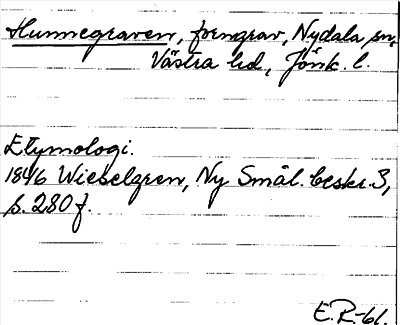 Hunnegraven, forngrav, Nydala sn,
Västra hd, Jönk. l.
Etymologi.
1846 Wieselgren, Ny Smål. beskr. 3,
s. 280 f.
E.R-61.